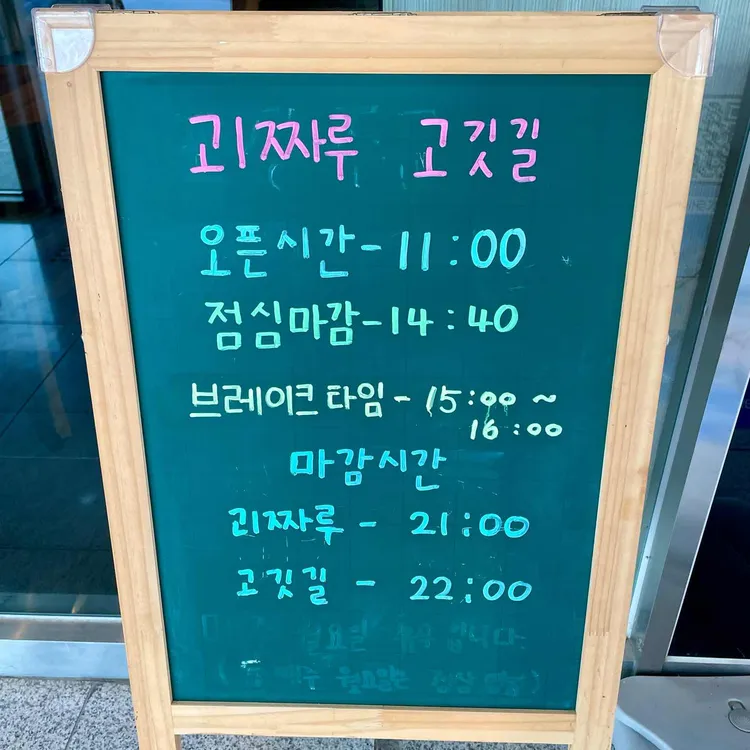 괴짜루 고깃길
오픈시간-11:00
점심마감-14:40
브레이크타임-15:00~
16:00
마감시간
괴짜루 - 21:00
고깃길 - 22:00
월요일